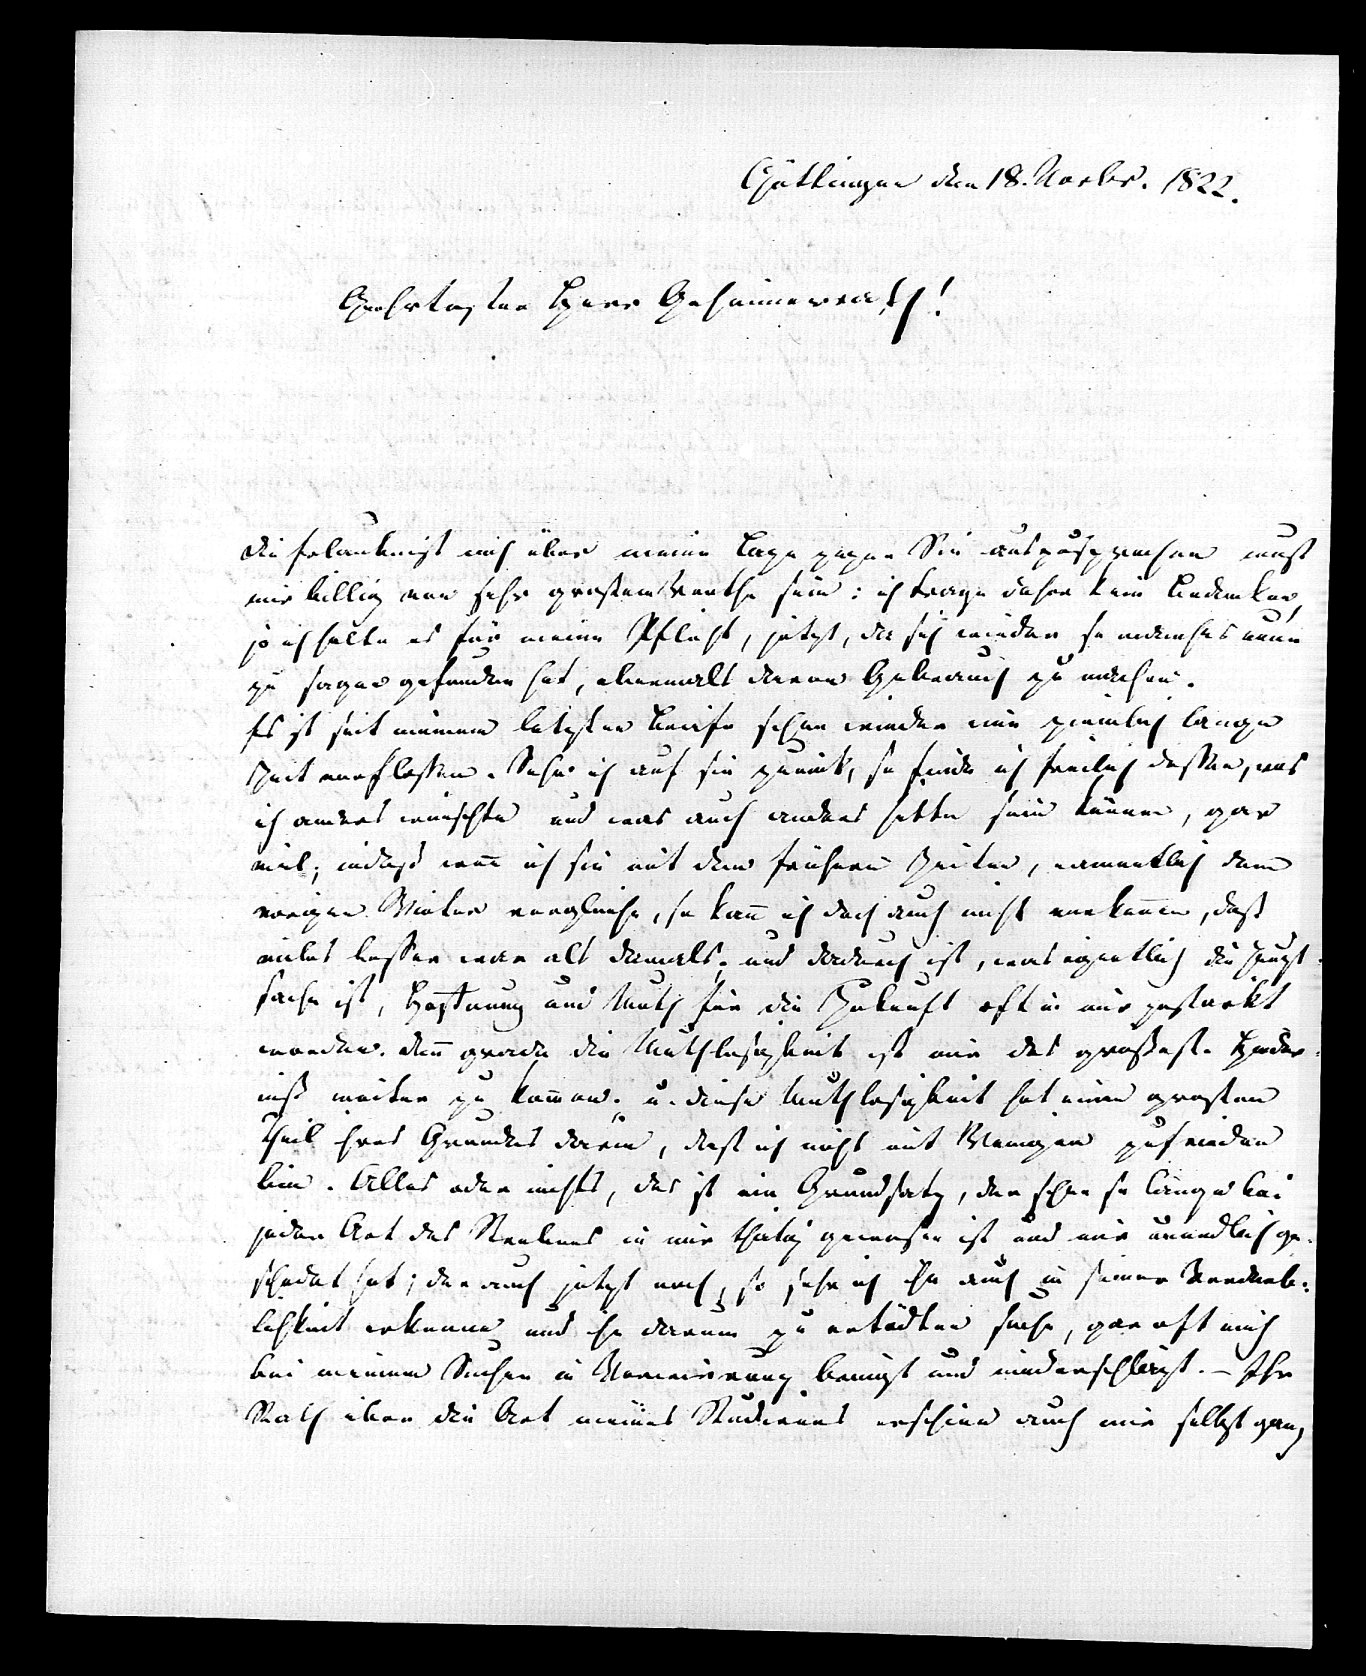 Göttingen den 18. Novbr. 1822.
Geehrtester Herr Geheimerath!
Die Erlaubniß mich über meine Lage gegen Sie auszusprechen muß
mir billig von sehr großem Werthe sein: ich trage daher kein Bedenken,
ja ich halte es für meine Pflicht, jetzt, da sich wieder so manches neue
zu sagen gefunden hat, abermals davon Gebrauch zu machen.
Es ist seit meinem letzten Briefe schon wieder eine ziemlich lange
Zeit verflossen. Sehe ich auf sie zurück, so finde ich freilich dessen, was
ich anders wünschte und was auch anders hätte sein können, gar
viel; indeß wenn ich sie mit den früheren Zeiten, namentlich dem
vorigen Winter vergleiche, so kann ich doch auch nicht verkennen, daß
vieles besser war als damals; und dadurch ist, was eigentlich die Haupt-
sache ist, Hoffnung und Muth für die Zukunft oft in mir gestärkt
worden. Denn grade die Muthlosigkeit ist mir das großeste Hinder-
niß weiter zu kommen; u. diese Muthlosigkeit hat einen großen
Theil ihres Grundes darin, daß ich nicht mit Wenigem zufrieden
bin. Alles oder nichts, das ist ein Grundsatz, der schon so lange bei
jeder Art des Strebens in mir thätig gewesen ist und mir unendlich ge-
schadet hat; der auch jetzt noch, so sehr ich ihn auch in seiner Verderb-
lichkeit erkenne und ihn darum zu ertödten suche, gar oft mich
bei meinem Suchen in Verwirrung bringt und niederschlägt. – Ihr
Rath über die Art meines Studirens erschien auch mir selbst ganz